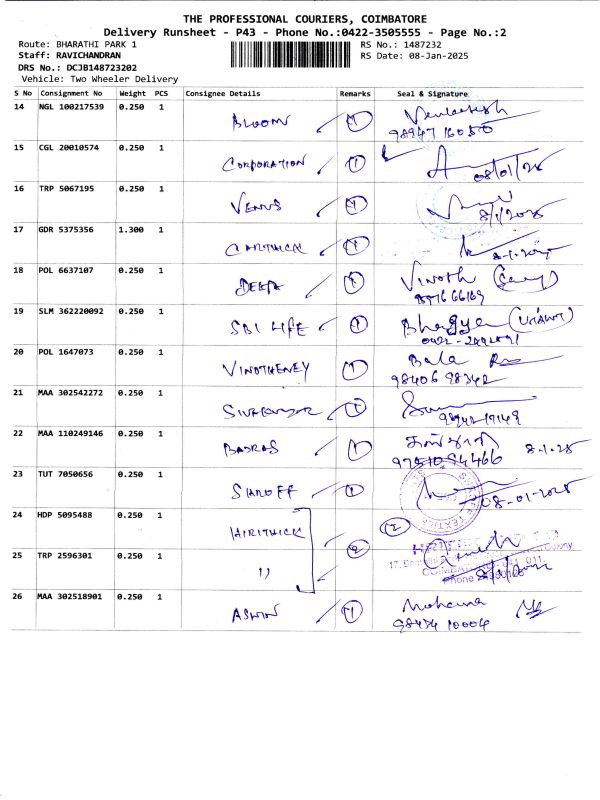 THE PROFESSIONAL COURIERS, COIMBATORE
Delivery Runsheet - P43 - Phone No.:0422-3505555 - Page No.:2
Route: BHARATHI PARK 1 RS No.: 1487232
Staff: RAVICHANDRAN RS Date: 08-Jan-2025
DRS No.: DCJB148723202
Vehicle: Two Wheeler Delivery
S No Consignment No Weight PCS Consignee Details Remarks Seal & Signature
14 NGL 100217539 0.250 1 BLOOM 1 Venkatesh
98947 16050
15 CGL 20010574 0.250 1 CORPORATION 1 08/01/25
16 TRP 5067195 0.250 1 VENUS 1 8/1/2025
17 GDR 5375356 1.300 1 1 8-1-2025
18 POL 6637107 0.250 1 DEEPA 1 Vinoth
19 SLM 362220092 0.250 1 SBI LIFE 1 Bhagya
20 POL 1647073 0.250 1 VINOTHENEY 1 Bala
98406 98342
21 MAA 302542272 0.250 1 1
22 MAA 110249146 0.250 1 BADRAS 1 8-1-25
94466
23 TUT 7050656 0.250 1 SHROFF 1 08-01-2025
24 HDP 5095488 0.250 1 HIRITHICK 2 2
25 TRP 2596301 0.250 1 "
26 MAA 302518901 0.250 1 ASWIN 1 Mohana
98434 10004